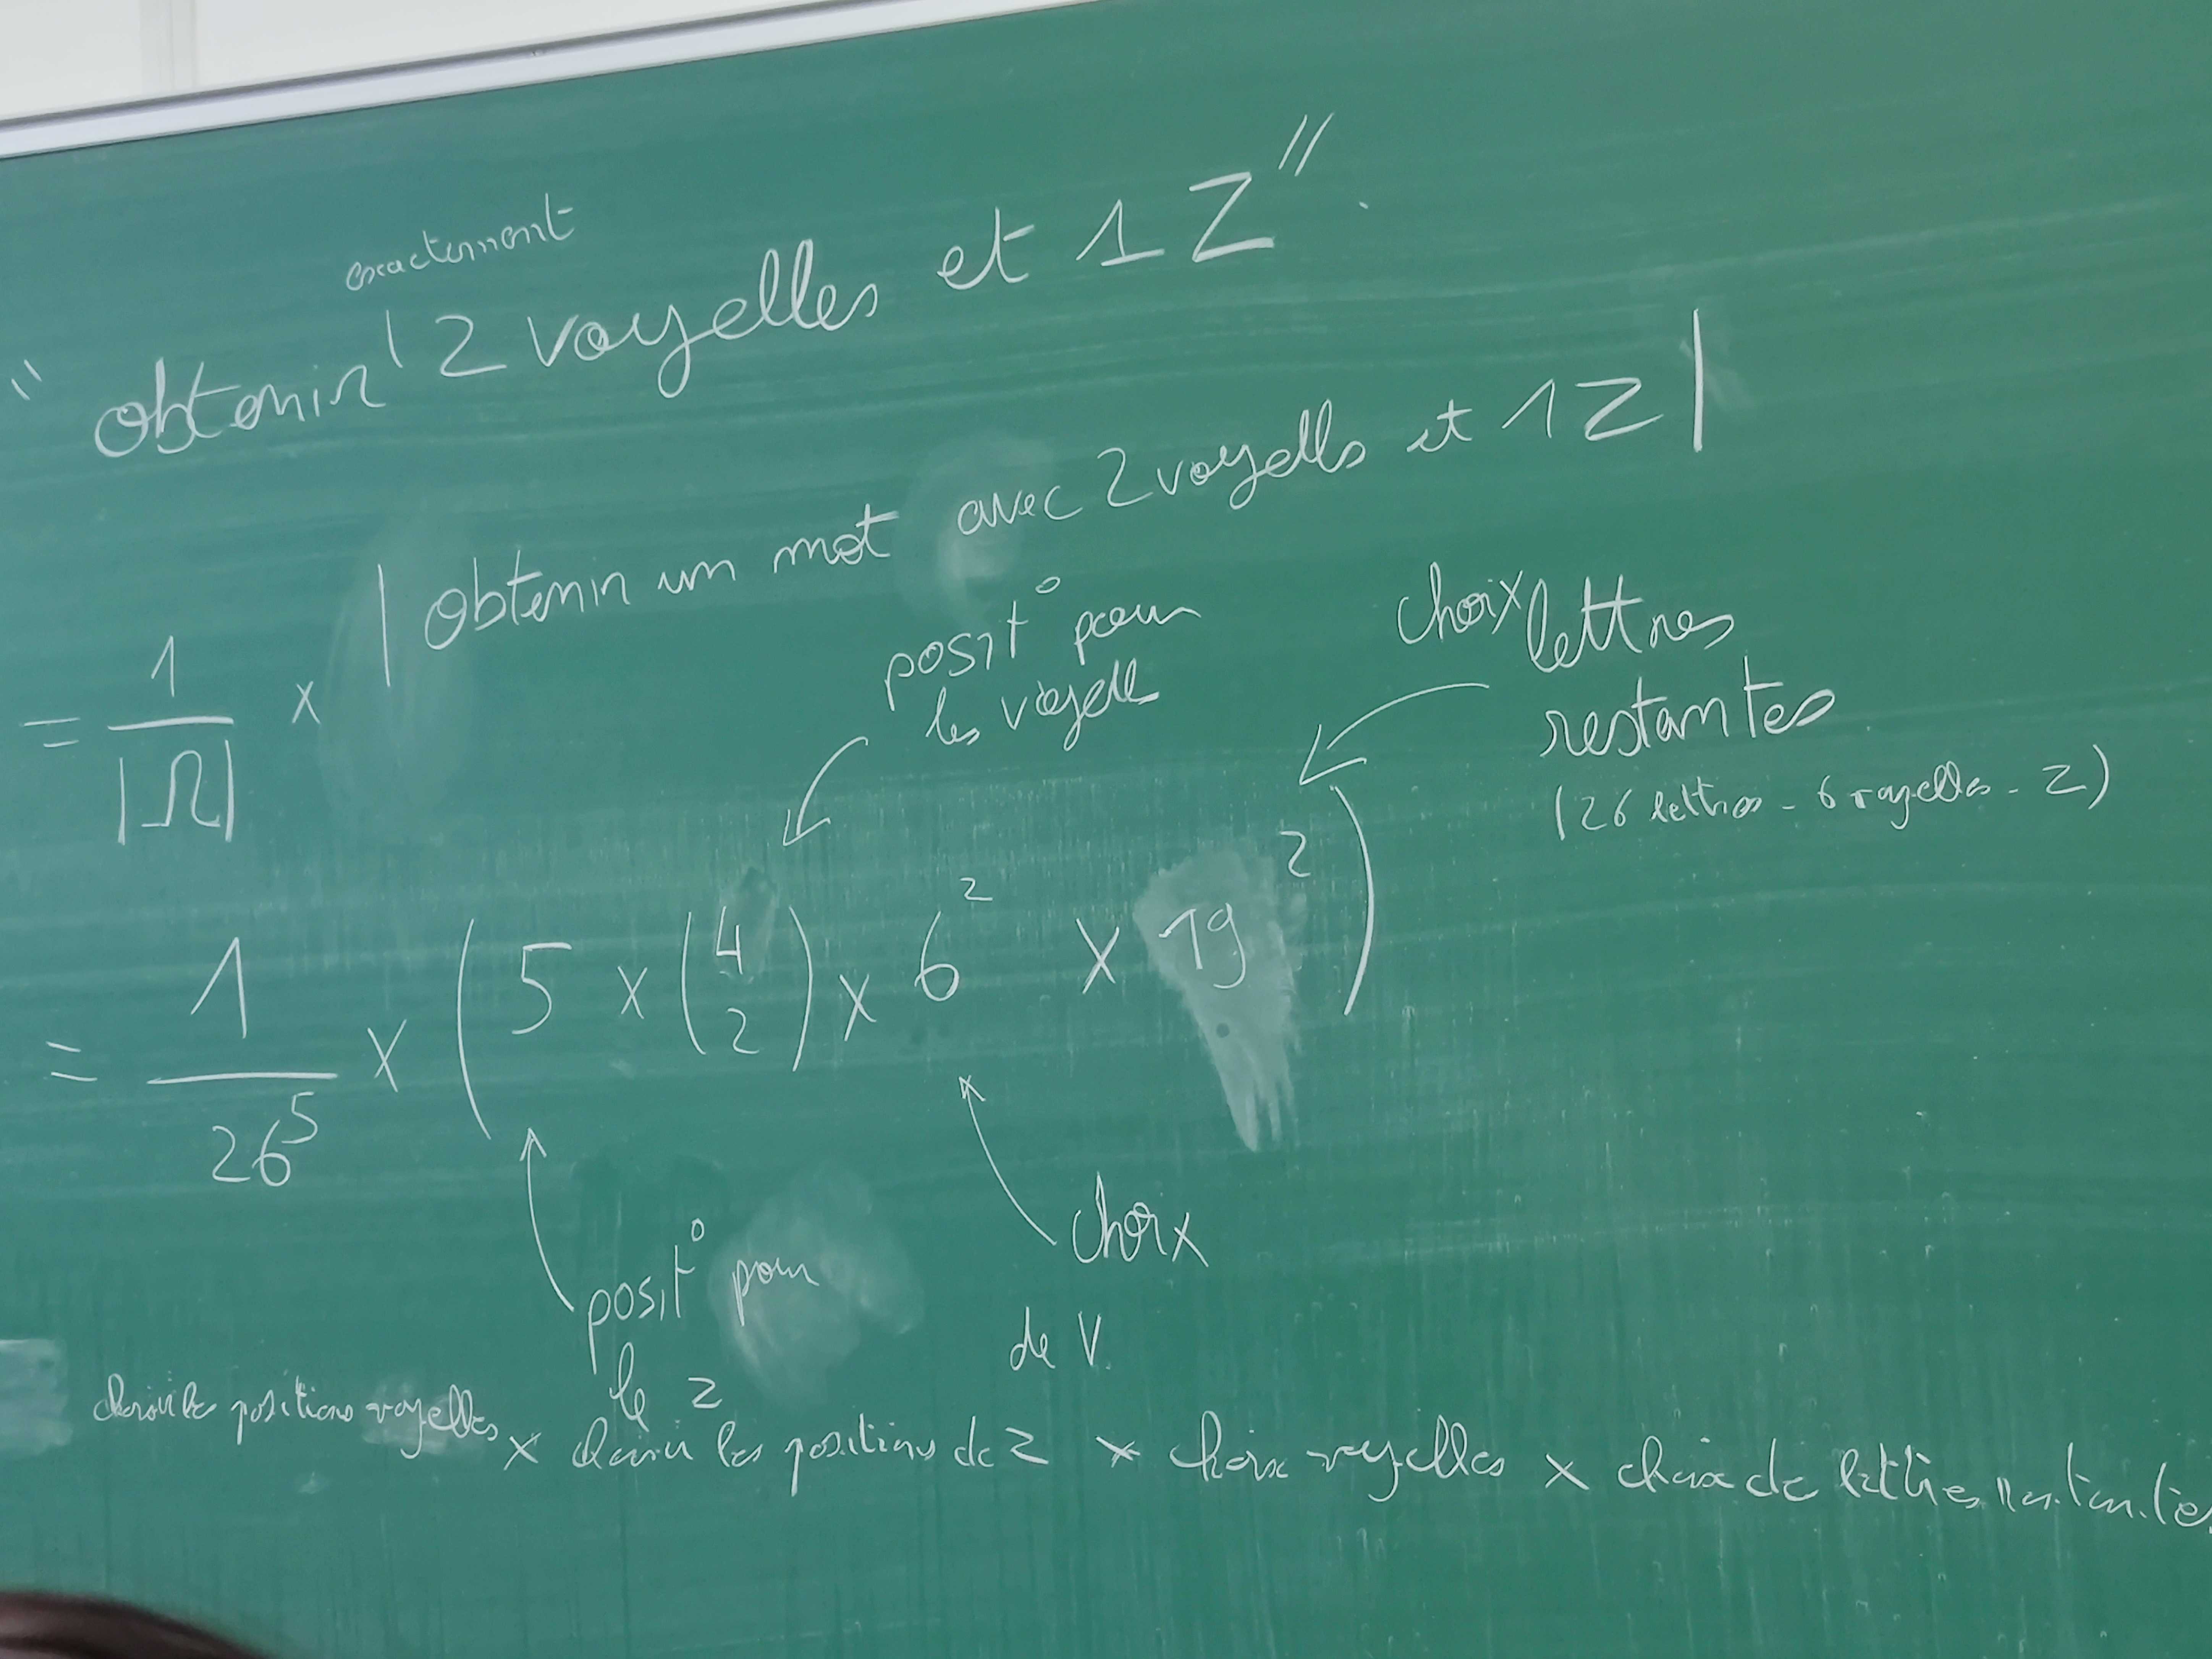 exactement
" obtenir 2 voyelles et 1 Z".
= 1/|Ω| × | obtenir un mot avec 2 voyells et 1 Z |
posit° pour
les voyell
choix lettres
restantes
(26 lettres - 6 voyelles - Z)
= 1/26⁵ × ( 5 × (4 2) × 6² × 19² )
posit° pour
le Z
choix
de V.
choisir les positions voyelles × choisir les positions de Z × choix voyelles × choix de lettres restantes